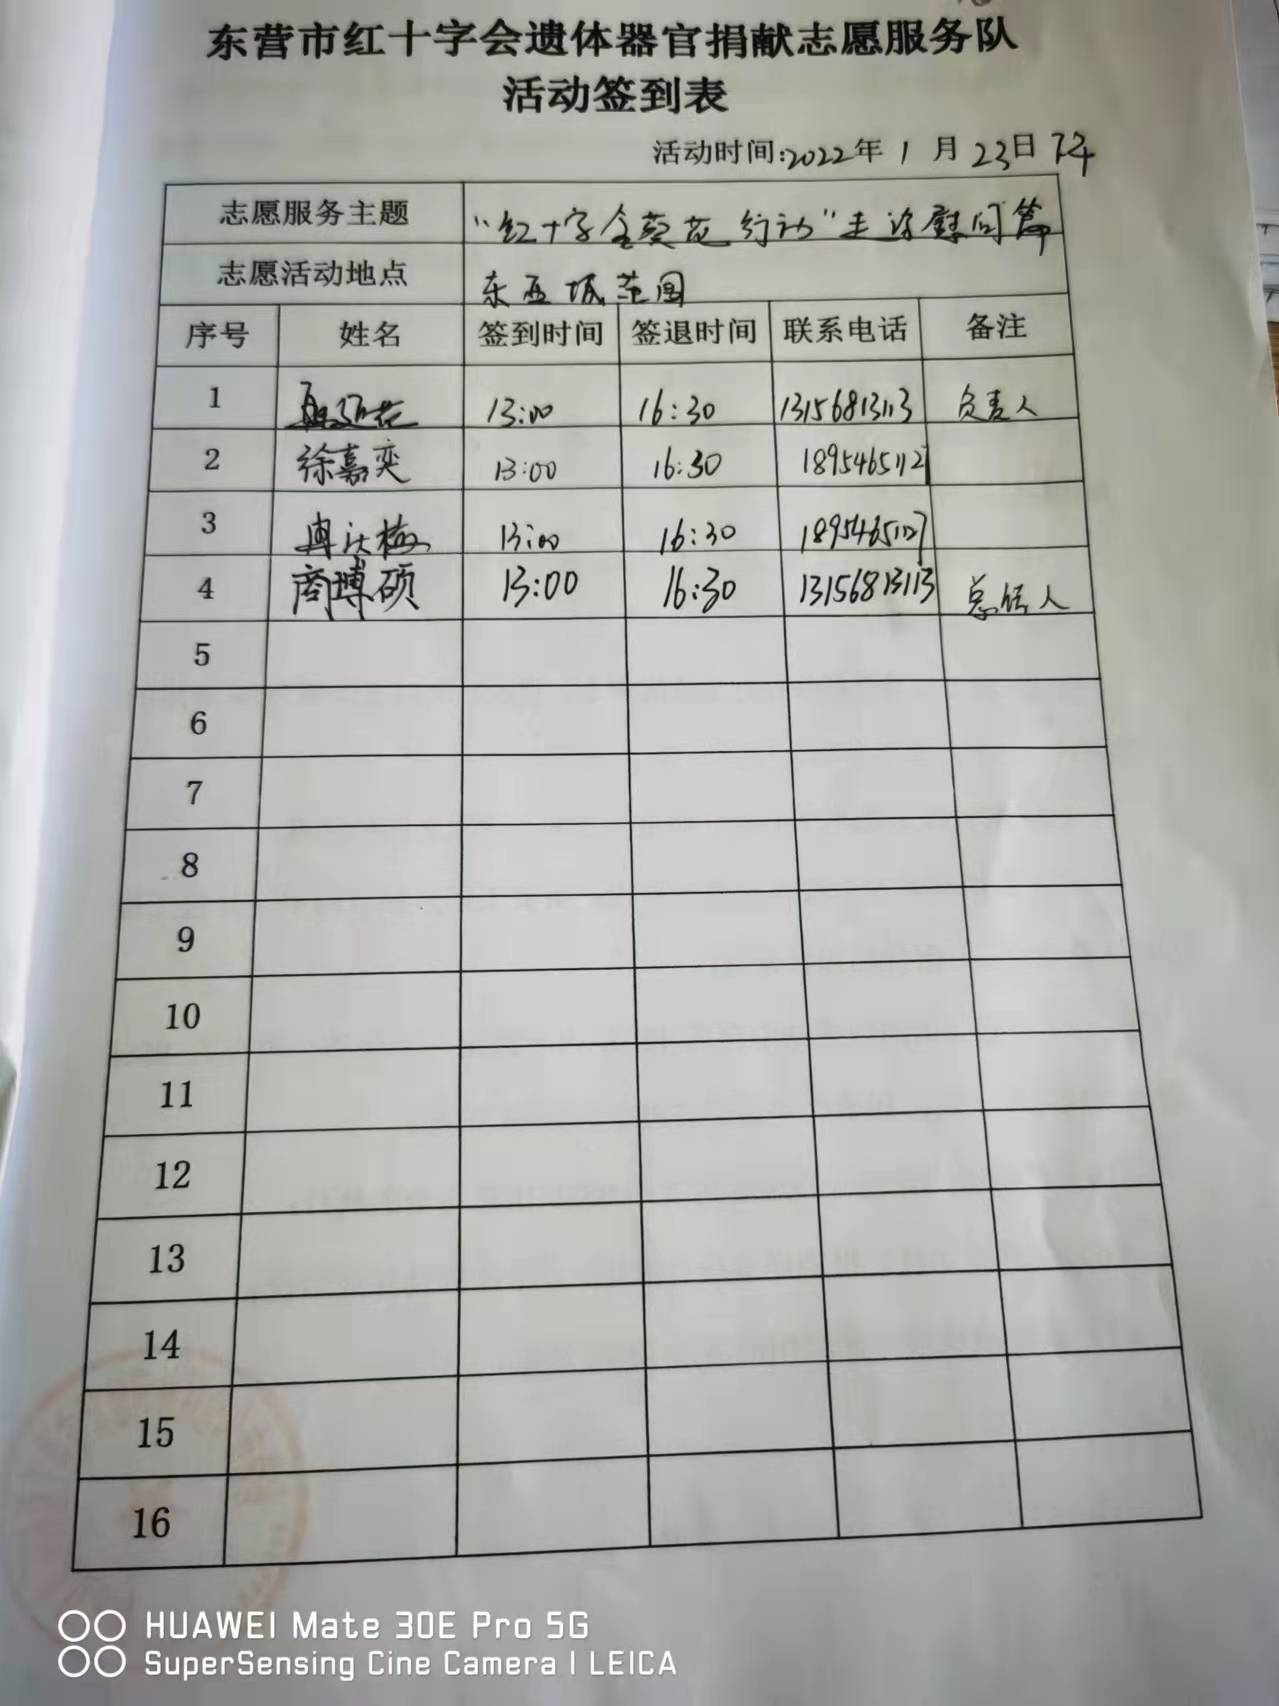 东营市红十字会遗体器官捐献志愿服务队
活动签到表
活动时间:2022年 1 月 23日 下午
志愿服务主题 "红十字金葵花行动"走访慰问篇
志愿活动地点 东西城范围
序号 姓名 签到时间 签退时间 联系电话 备注
1 13:00 16:30 13156813113 负责人
2 徐嘉奕 13:00 16:30
3 13:00 16:30 18954651127
4 商博硕 13:00 16:30 13156813113 人
5
6
7
8
9
10
11
12
13
14
15
16
HUAWEI Mate 30E Pro 5G
SuperSensing Cine Camera | LEICA